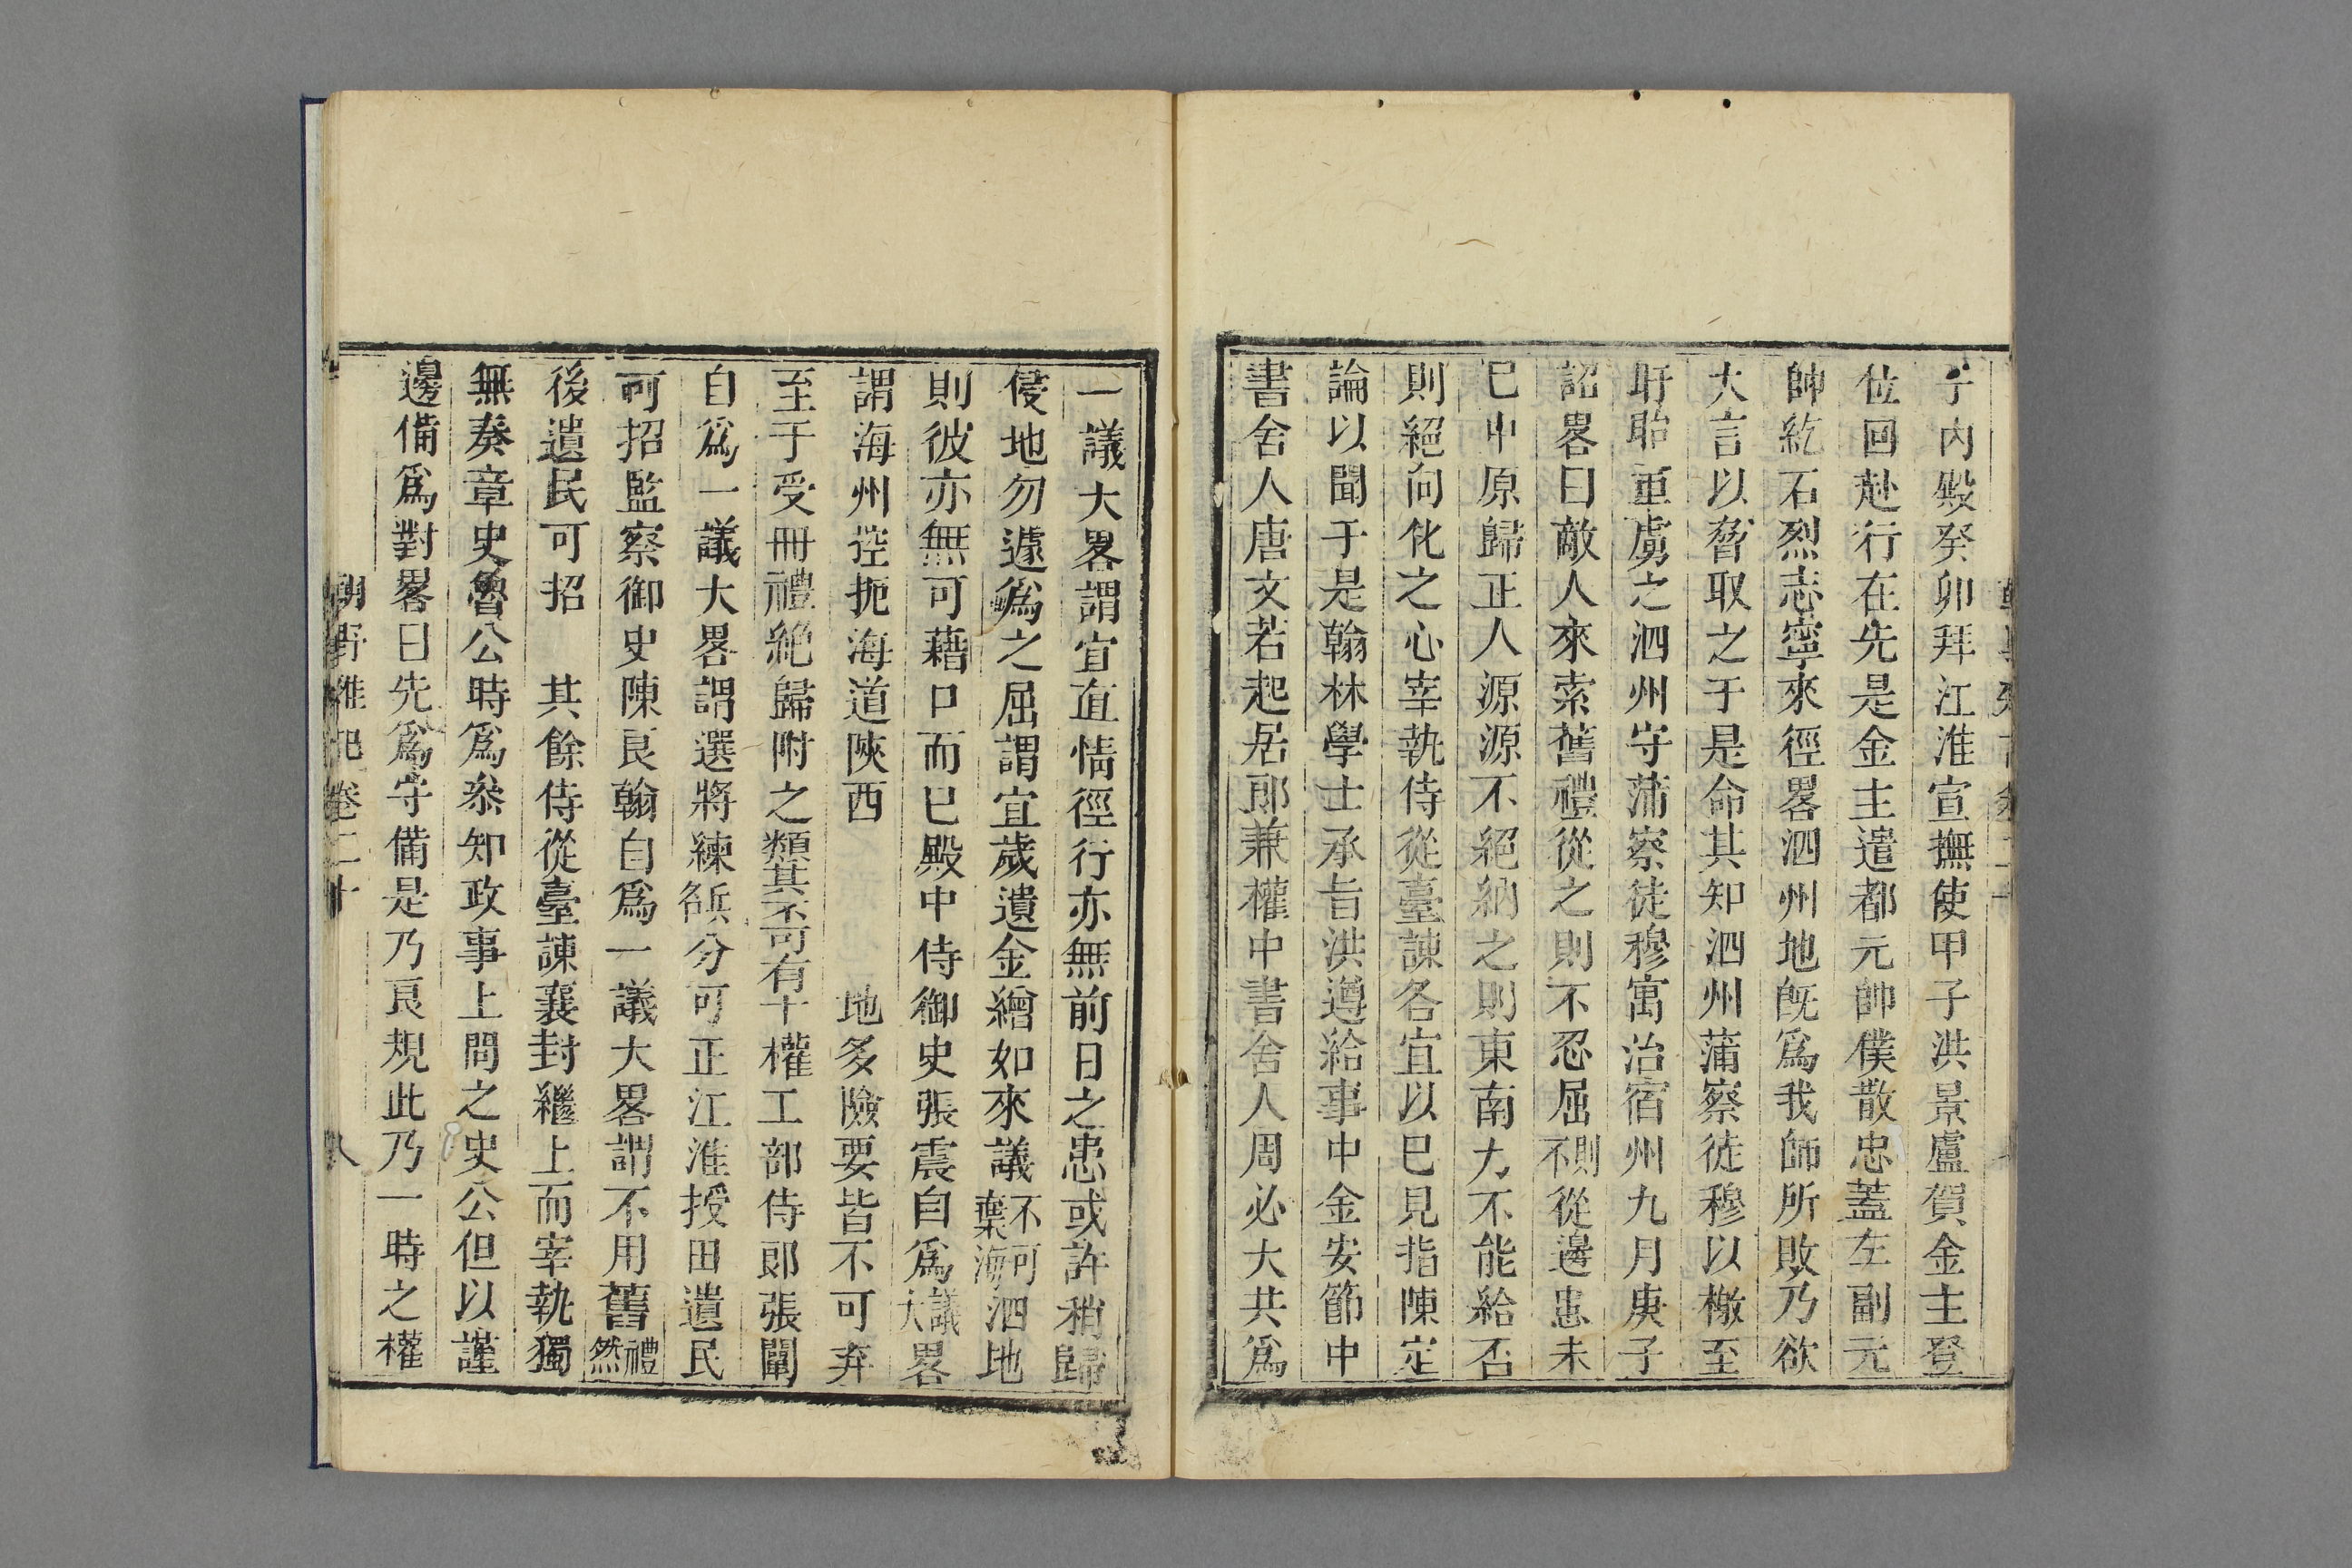 于內殿癸卯拜江淮宣撫使甲子洪景盧賀金主登
位回赴行在先是金主遣都元帥僕散忠蓋左副元
帥紇石烈志寧來徑畧泗州地旣爲我師所敗乃欲
大言以脅取之于是命其知泗州蒲察徒穆以檄至
盱眙重虜之泗州守蒲察徒穆寓治宿州九月庚子
詔畧曰敵人來索舊禮從之則不忍屈不則從邊患未
已中原歸正人源源不絕納之則東南力不能給否
則絕向化之心宰執侍從臺諫各宜以巳見指陳定
論以聞于是翰林學士承旨洪遵給事中金安節中
書舍人唐文若起居郎兼權中書舍人周必大共爲
一議大畧謂宜直情徑行亦無前日之患或許稍歸
侵地勿遽爲之屈謂宜歲遺金繒如來議不可棄海泗地
則彼亦無可藉口而巳殿中侍御史張震自爲議大畧
謂海州控扼海道陝西 地多險要皆不可弃
至于受冊禮絕歸附之類其不可有十權工部侍郎張闡
自爲一議大畧謂選將練兵分可正江淮授田遺民
可招監察御史陳良翰自爲一議大畧謂不用舊禮然
後遺民可招 其餘侍從臺諫襄封繼上而宰執獨
無奏章史魯公時爲叅知政事上問之史公但以謹
邊備爲對畧曰先爲守備是乃良規此乃一時之權
朝野雜記卷二十 八